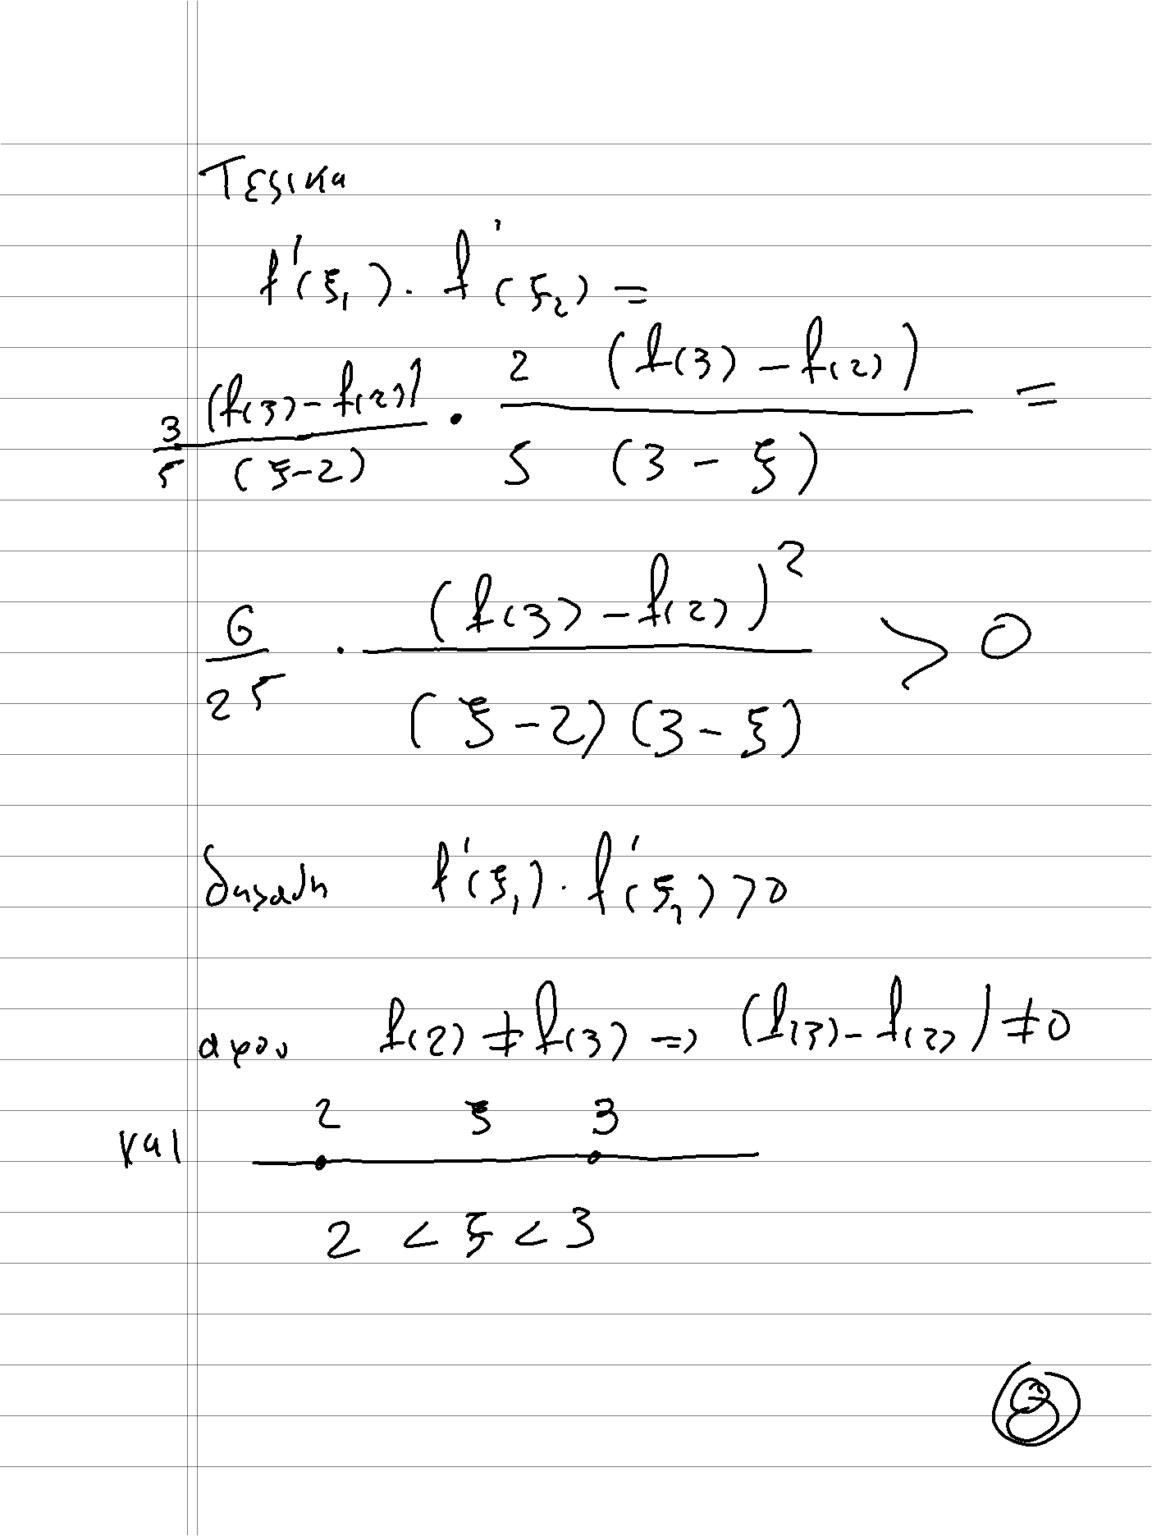 Τελικα
f'(ξ₁) · f'(ξ₂) =
3/5 (f(3) - f(2))/(ξ-2) · 2/5 (f(3) - f(2))/(3 - ξ) =
6/25 · (f(3) - f(2))²/((ξ-2)(3-ξ)) > 0
δηλαδη f'(ξ₁) · f'(ξ₂) > 0
αφου f(2) ≠ f(3) => (f(3) - f(2)) ≠ 0
2 ξ 3
και
2 < ξ < 3
8